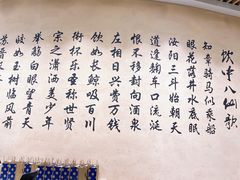 饮中八仙歌
知章骑马似乘船
眼花落井水底眠
汝阳三斗始朝天
道逢麴车口流涎
恨不移封向酒泉
左相日兴费万钱
饮如长鲸吸百川
衔杯乐圣称世贤
宗之潇洒美少年
举觞白眼望青天
皎如玉树临风前
苏晋